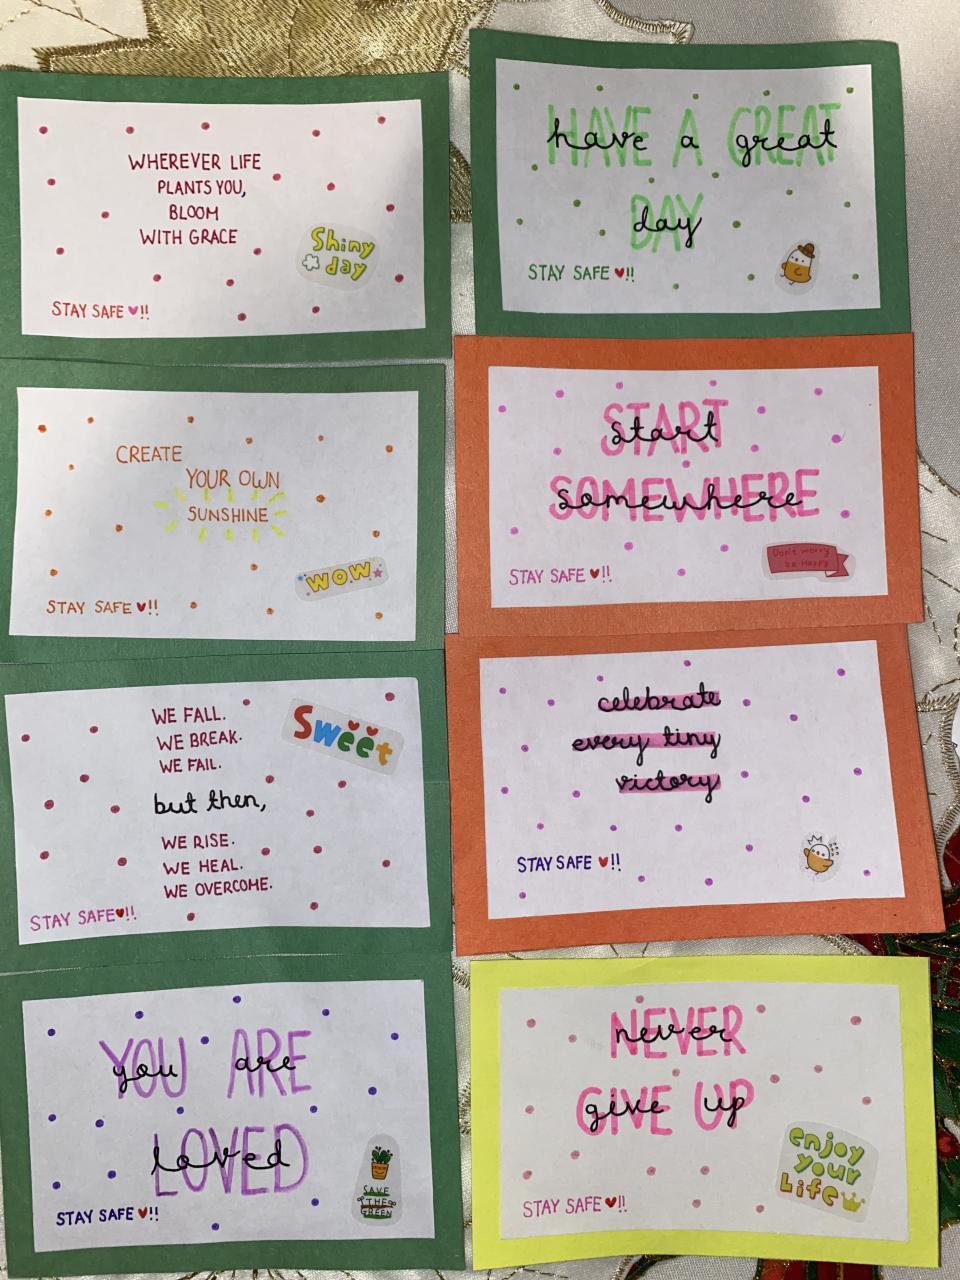 WHEREVER LIFE
PLANTS YOU,
BLOOM
WITH GRACE
Shiny
day
STAY SAFE ♥!!
HAVE A GREAT
have a great
DAY
day
STAY SAFE ♥!!
CREATE
YOUR OWN
SUNSHINE
WOW
STAY SAFE ♥!!
START
start
SOMEWHERE
somewhere
Don't worry
be Happy
STAY SAFE ♥!!
WE FALL.
WE BREAK.
WE FAIL.
but then,
WE RISE.
WE HEAL.
WE OVERCOME.
Sweet
STAY SAFE♥!!
celebrate
every tiny
victory
STAY SAFE ♥!!
YOU ARE
you are
LOVED
loved
SAVE
THE
GREEN
STAY SAFE ♥!!
NEVER
never
GIVE UP
give up
enjoy
your
Life
STAY SAFE ♥!!